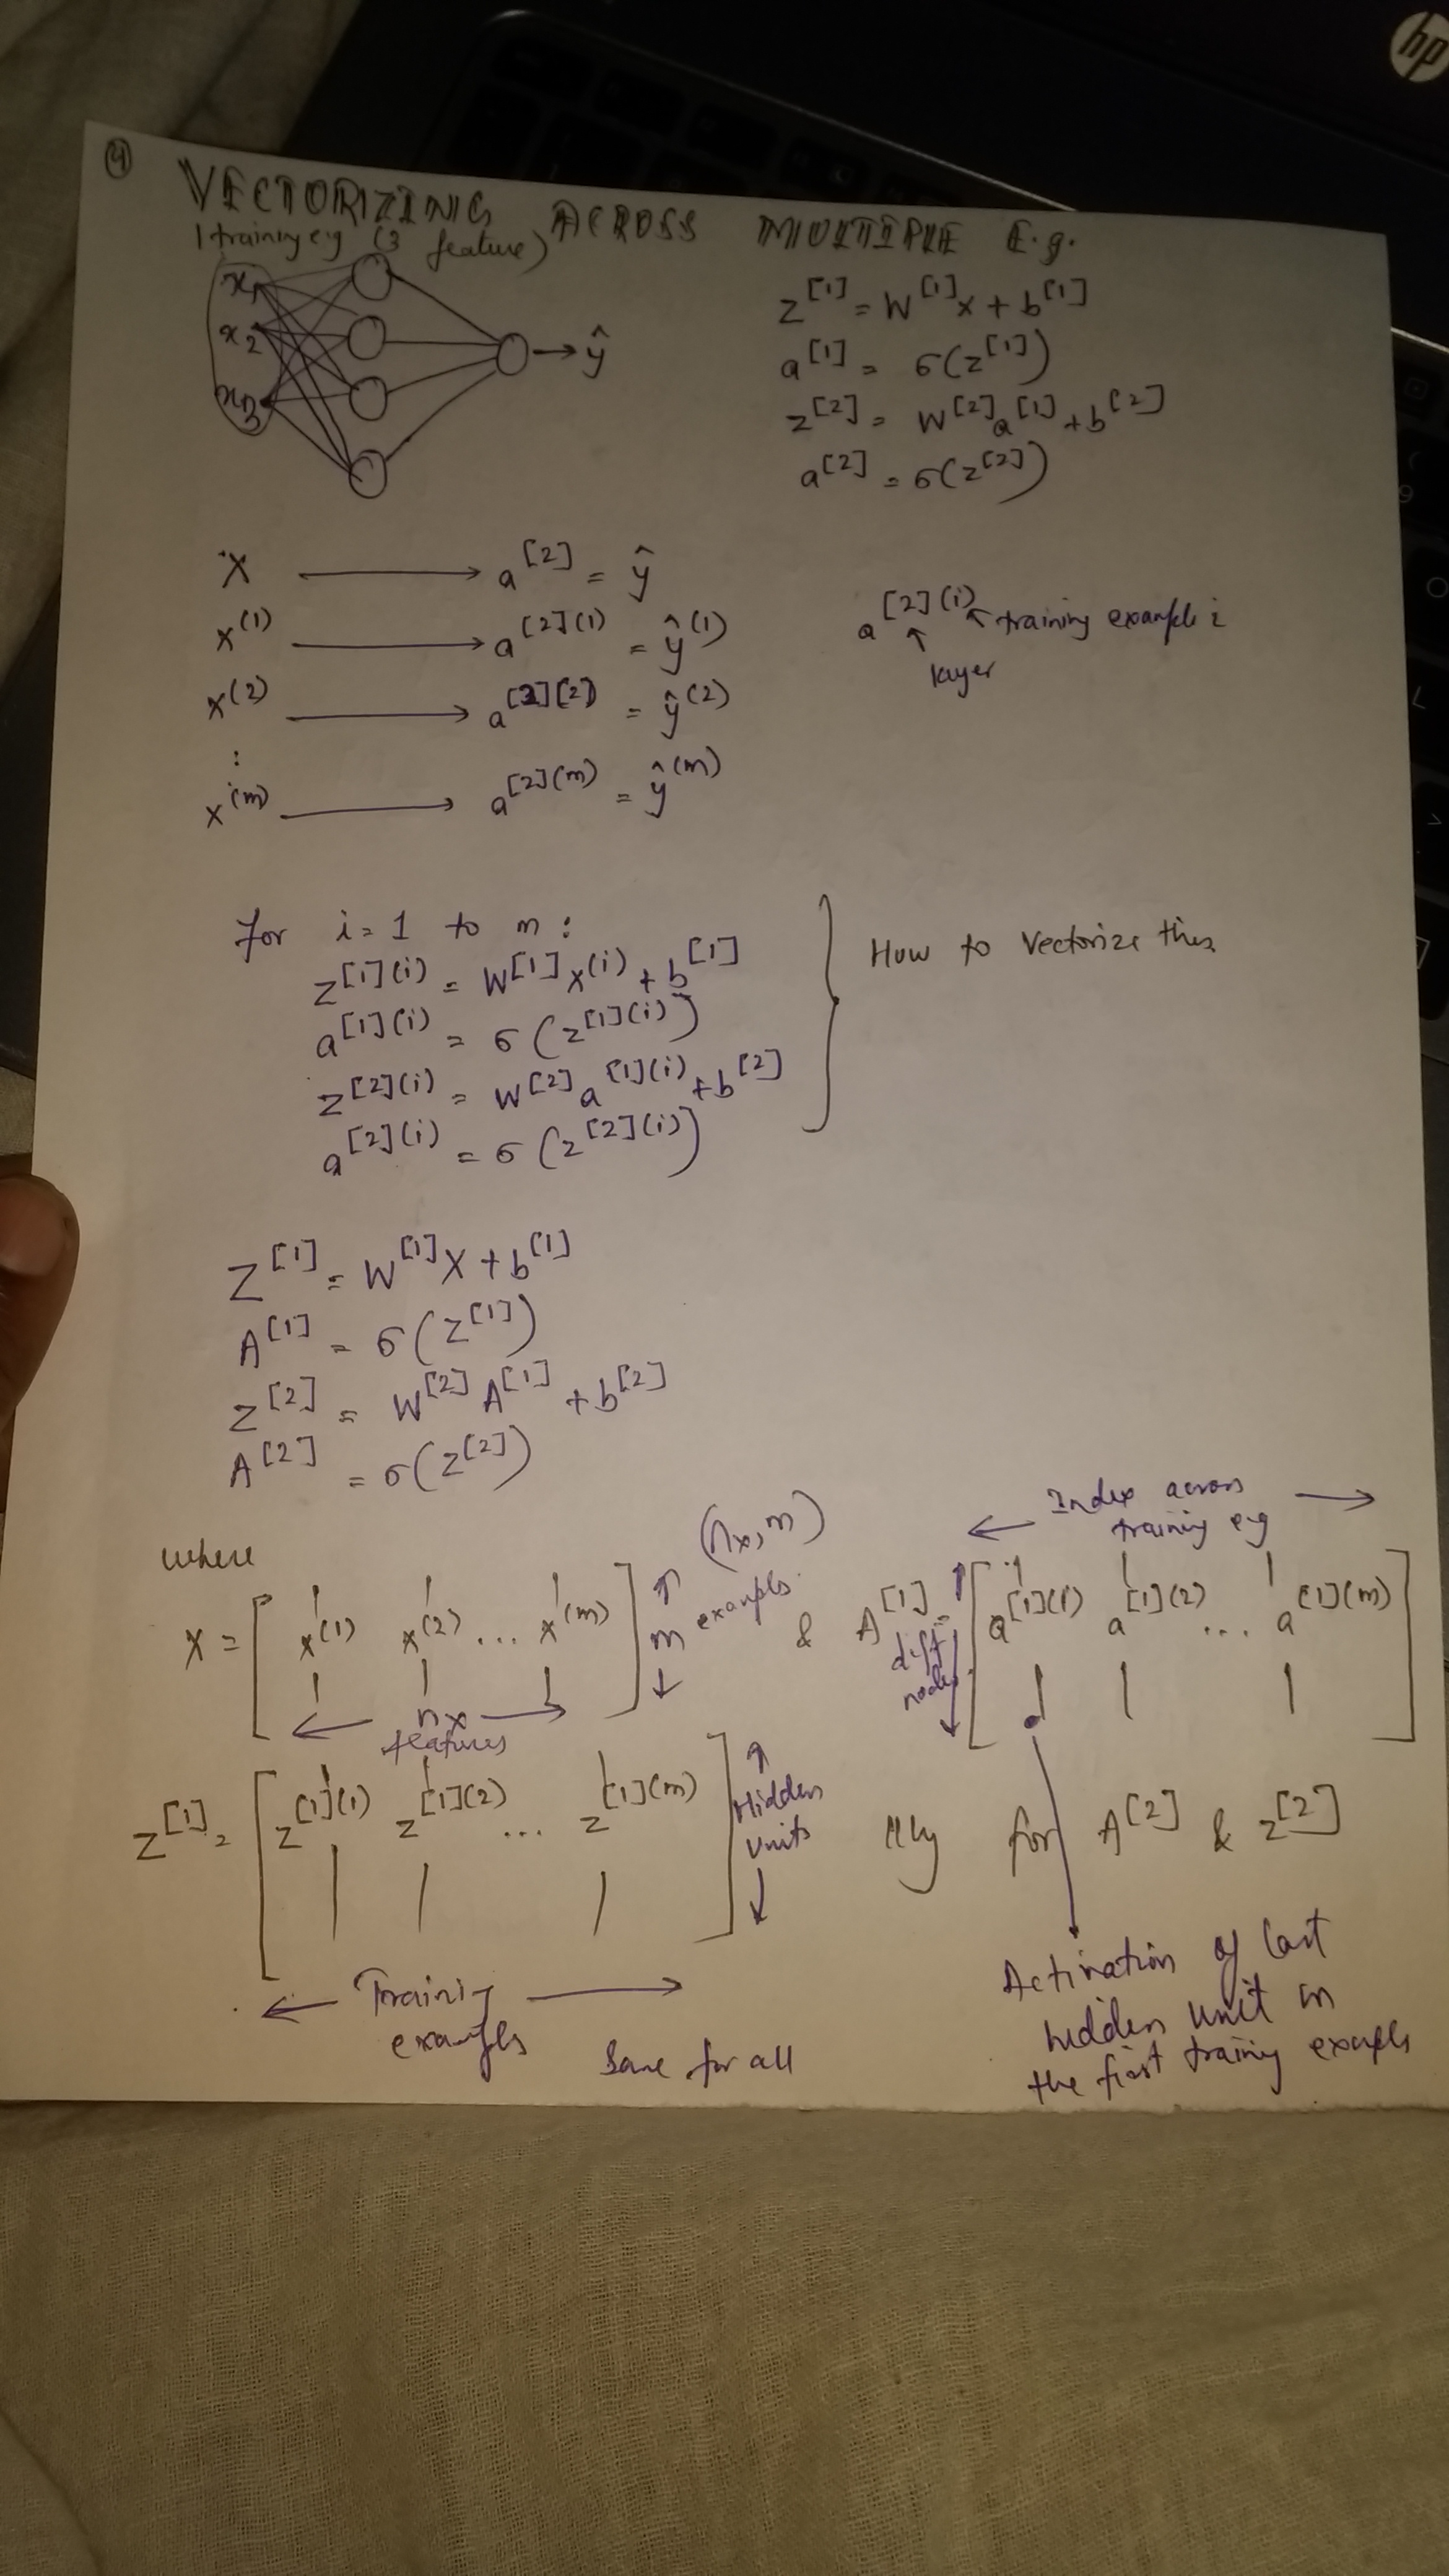 hp
④ VECTORIZING ACROSS MULTIPLE E.g.
1 training eg (3 feature)
x1
x2
x3
ŷ
z^[1] = W^[1]x + b^[1]
a^[1] = σ(z^[1])
z^[2] = W^[2]a^[1] + b^[2]
a^[2] = σ(z^[2])
X → a^[2] = ŷ
x^(1) → a^[2](1) = ŷ^(1)
x^(2) → a^[2](2) = ŷ^(2)
:
x^(m) → a^[2](m) = ŷ^(m)
a^[2](i) ↖ training example i
↑
layer
for i = 1 to m :
z^[1](i) = W^[1]x^(i) + b^[1]
a^[1](i) = σ(z^[1](i))
z^[2](i) = W^[2]a^[1](i) + b^[2]
a^[2](i) = σ(z^[2](i))
How to vectorize this
Z^[1] = W^[1]X + b^[1]
A^[1] = σ(Z^[1])
Z^[2] = W^[2]A^[1] + b^[2]
A^[2] = σ(Z^[2])
where
X = [x^(1) x^(2) ... x^(m)]
(nx, m)
↑ m examples ↓
← nx →
features
& A^[1] = [a^[1](1) a^[1](2) ... a^[1](m)]
← Index across →
training eg
↑ diff nodes ↓
Z^[1] = [z^[1](1) z^[1](2) ... z^[1](m)]
↑
Hidden
units
↓
← Training →
examples
Same for all
llly for A^[2] & Z^[2]
Activation of last
hidden unit in
the first training example